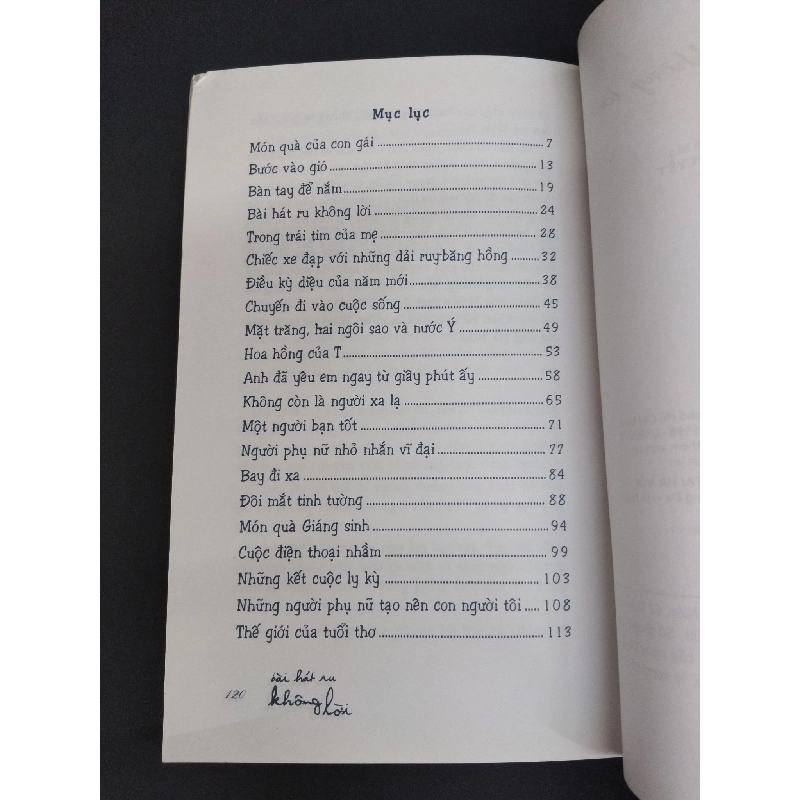 Mục lục
Món quà của con gái ........ 7
Bước vào gió ........ 13
Bàn tay để nắm ........ 19
Bài hát ru không lời ........ 24
Trong trái tim của mẹ ........ 28
Chiếc xe đạp với những dải ruy-băng hồng ........ 32
Điều kỳ diệu của năm mới ........ 38
Chuyến đi vào cuộc sống ........ 45
Mặt trăng, hai ngôi sao và nước Ý ........ 49
Hoa hồng của T ........ 53
Anh đã yêu em ngay từ giây phút ấy ........ 58
Không còn là người xa lạ ........ 65
Một người bạn tốt ........ 71
Người phụ nữ nhỏ nhắn vĩ đại ........ 77
Bay đi xa ........ 84
Đôi mắt tinh tường ........ 88
Món quà Giáng sinh ........ 94
Cuộc điện thoại nhầm ........ 99
Những kết cuộc ly kỳ ........ 103
Những người phụ nữ tạo nên con người tôi ..... 108
Thế giới của tuổi thơ ........ 113
bài hát ru
120 không lời